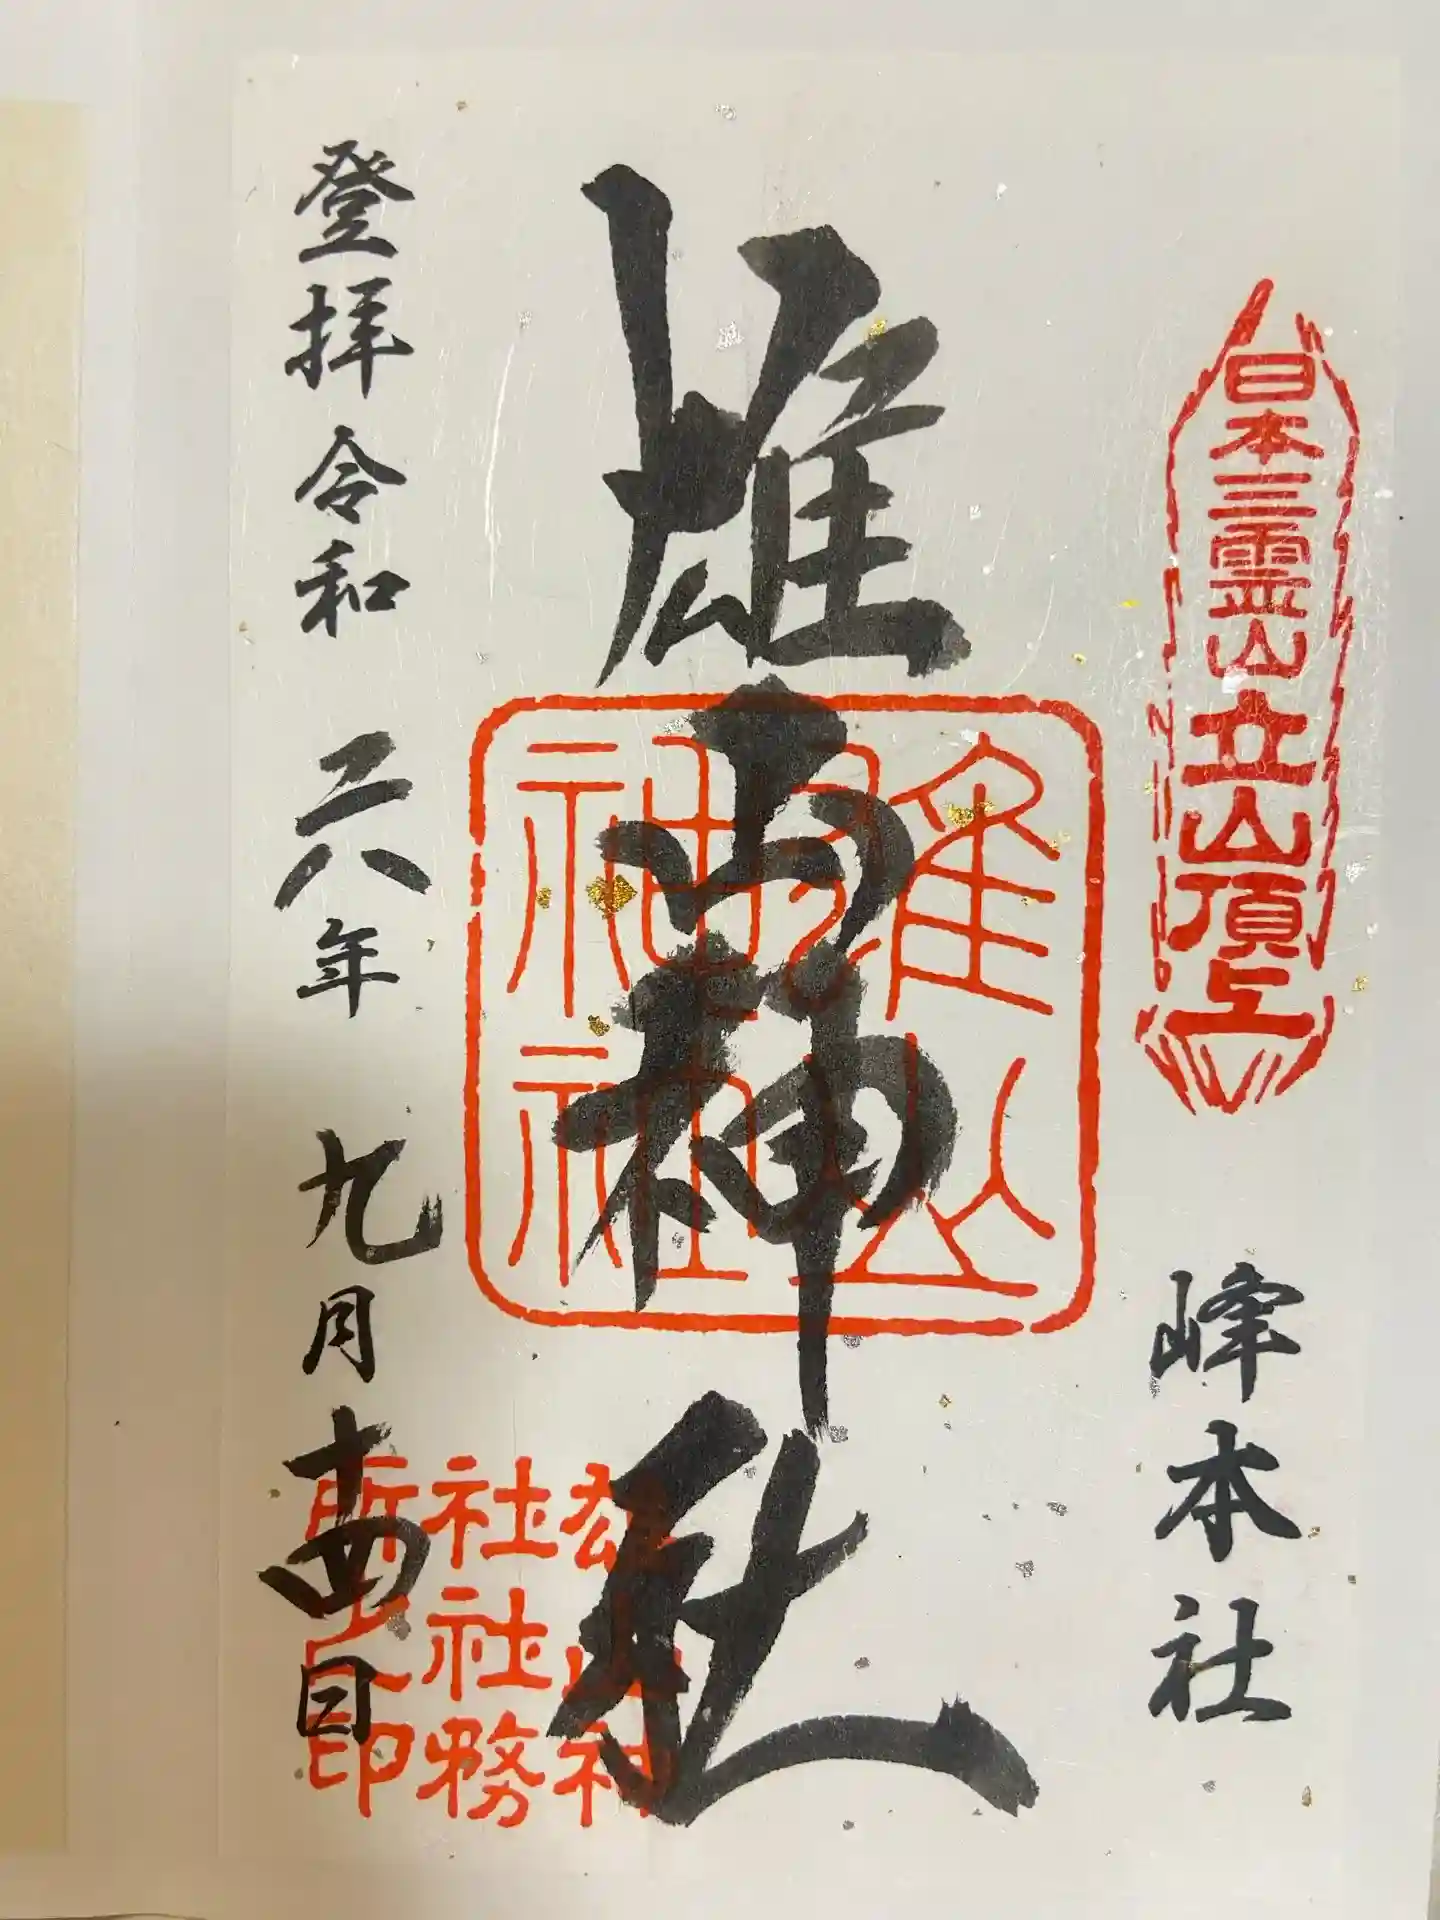 日本三霊山立山頂上
峰本社
雄山神社
雄山
神社
雄山神
社社務
所之印
登拝 令和 六年 九月 十四日